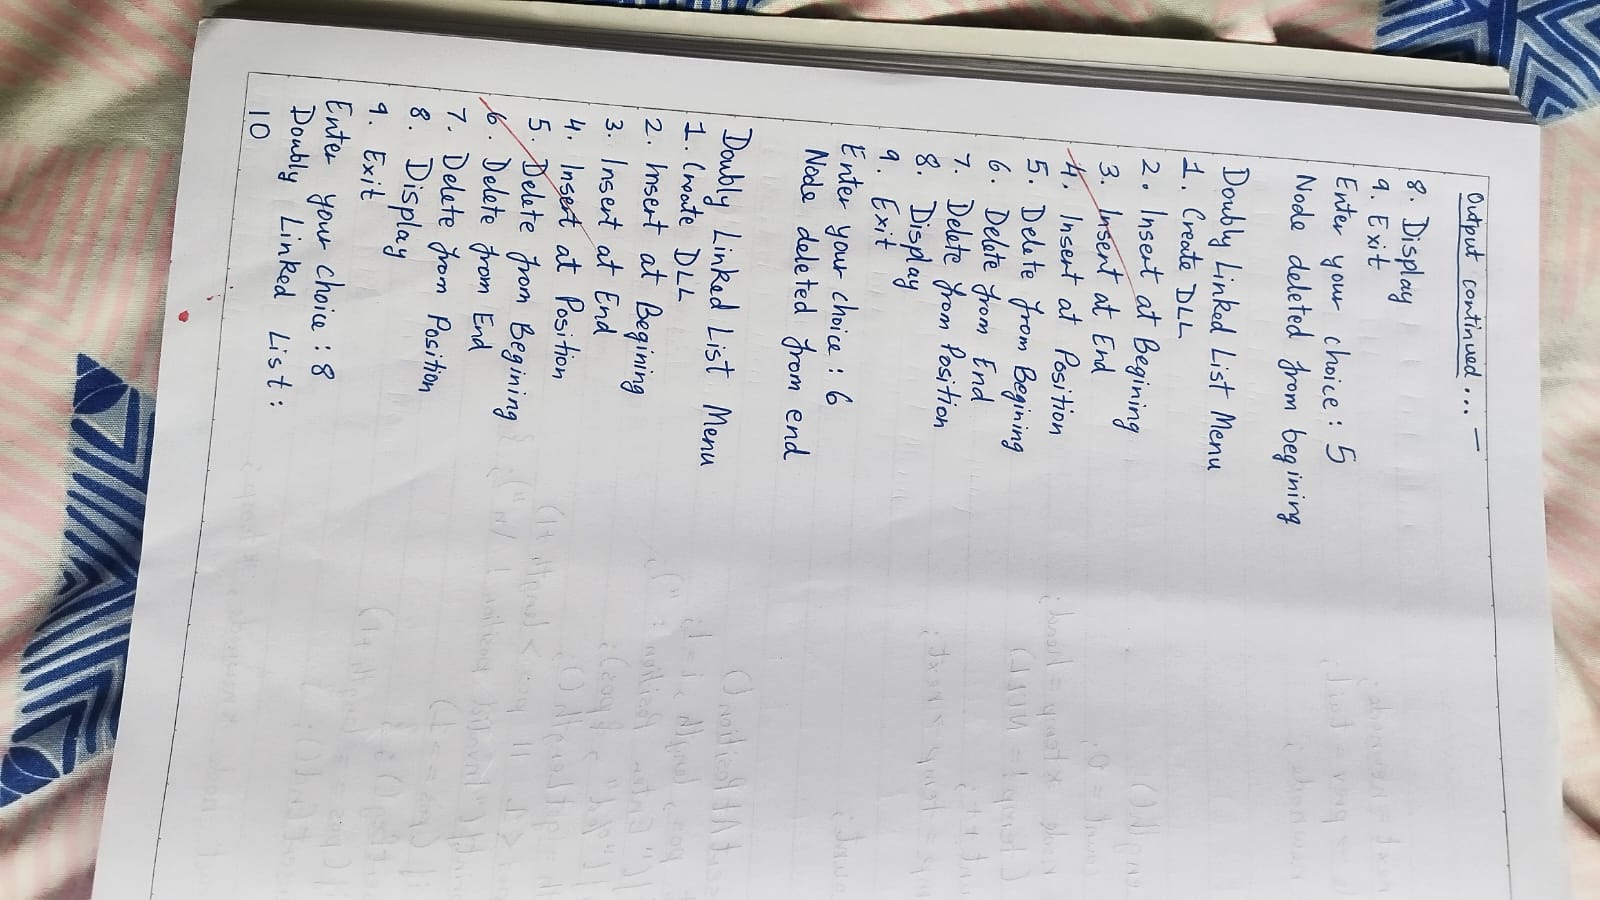 Output continued... —
8. Display
9. Exit
Enter your choice : 5
Node deleted from begining
Doubly Linked List Menu
1. Create DLL
2. Insert at Begining
3. Insert at End
4. Insert at Position
5. Delete from Begining
6. Delete from End
7. Delete from Position
8. Display
9. Exit
Enter your choice : 6
Node deleted from end
Doubly Linked List Menu
1. Create DLL
2. Insert at Begining
3. Insert at End
4. Insert at Position
5. Delete from Begining
6. Delete from End
7. Delete from Position
8. Display
9. Exit
Enter your choice : 8
Doubly Linked List :
10